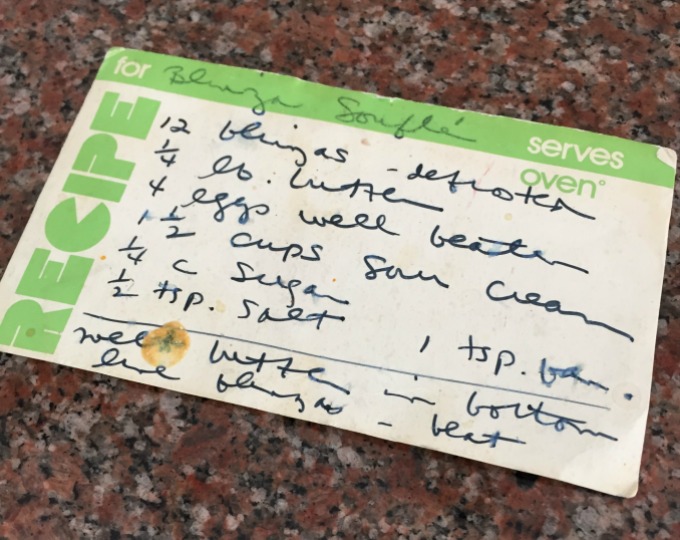 RECIPE
for Blinza Souflé
serves
oven°
12 blinzas - defrosted
1/4 lb. butter
4 eggs well beaten
1 1/2 cups sour cream
1/4 c sugar
1/2 tsp. salt
1 tsp. van.
melt butter in bottom
line blinzas - beat